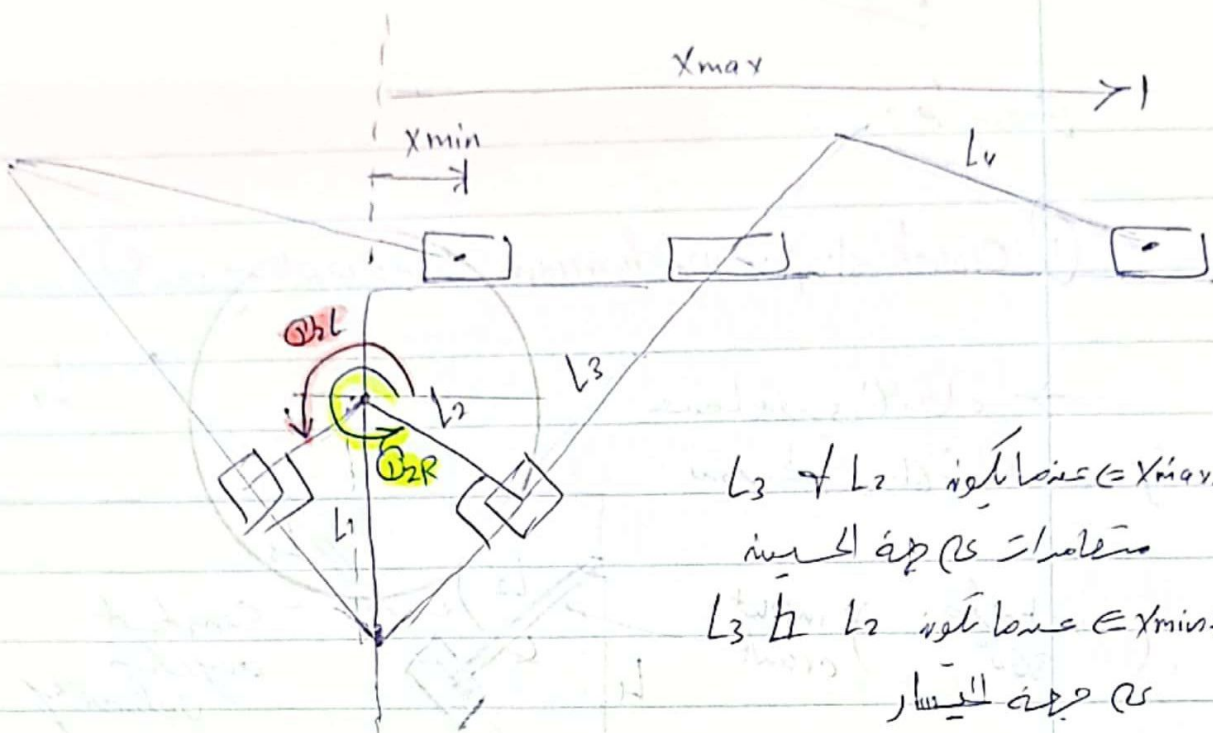 Xmax
Xmin
L4
θ2L
L2
L3
θ2R
L1
Xmax ⇐ عندما يكون L2 ⊥ L3
متعامدات على جهة اليمين
Xmin ⇐ عندما تكون L2 ⊥ L3
على جهة اليسار